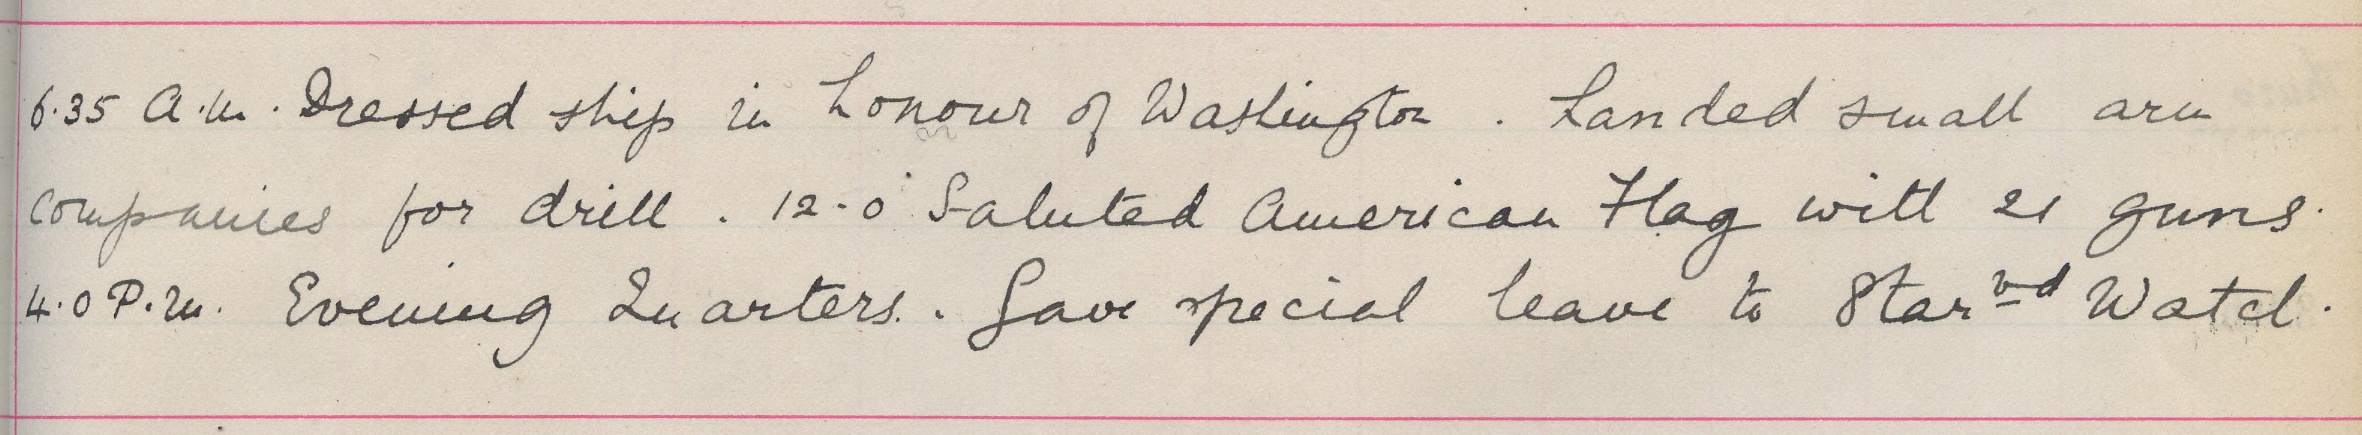 6.35 A.M. Dressed ship in honour of Washington. Landed small arm
companies for drill. 12.0 Saluted American Flag with 21 guns.
4.0 P.M. Evening Quarters. Gave special leave to Starbd Watch.